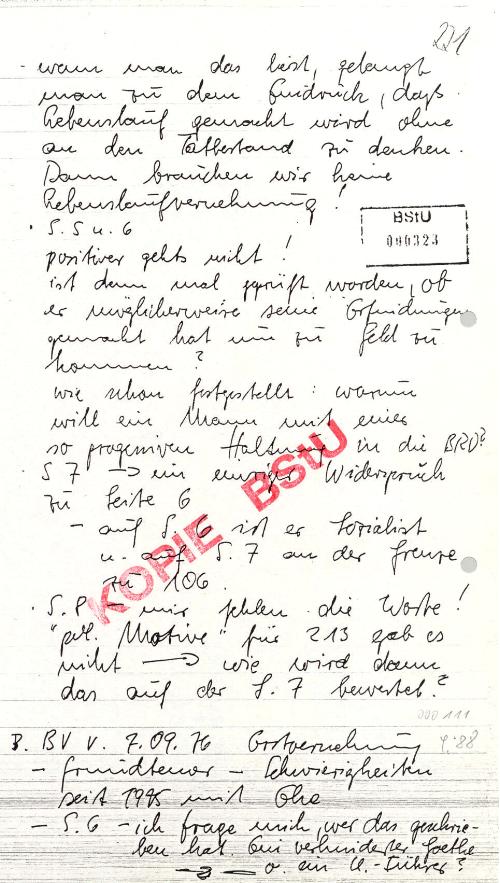 221
- wenn man das liest, gelangt
man zu dem Eindruck, daß
Lebenslauf gemacht wird ohne
an den Tatbestand zu denken.
Dann brauchen wir keine
Lebenslaufvernehmung!
BStU
000323
· S. 5 u. 6
positiver gehts nicht!
ist denn mal geprüft worden, ob
er möglicherweise seine Erfindungen
gemacht hat um zu Geld zu
kommen?
wie schon festgestellt: warum
will ein Mann mit einer
so progressiven Haltung in die BRD?
· S 7 → ein einziger Widerspruch
zu Seite 6
- auf S. 6 ist er Sozialist
u. auf S. 7 an der Grenze
zu 106.
KOPIE BStU
· S. 8 - mir fehlen die Worte!
"pol. Motive" für 213 gab es
nicht → wie wird dann
das auf der S. 7 bewertet?
000111
B. BV v. 7.09.76 Erstvernehmung
- Grundtenor - Schwierigkeiten
seit 1975 mit Ehe
- S. 6 - ich frage mich, wer das geschrie-
ben hat. Ein verhinderter Goethe
o. ein U.-Führer?